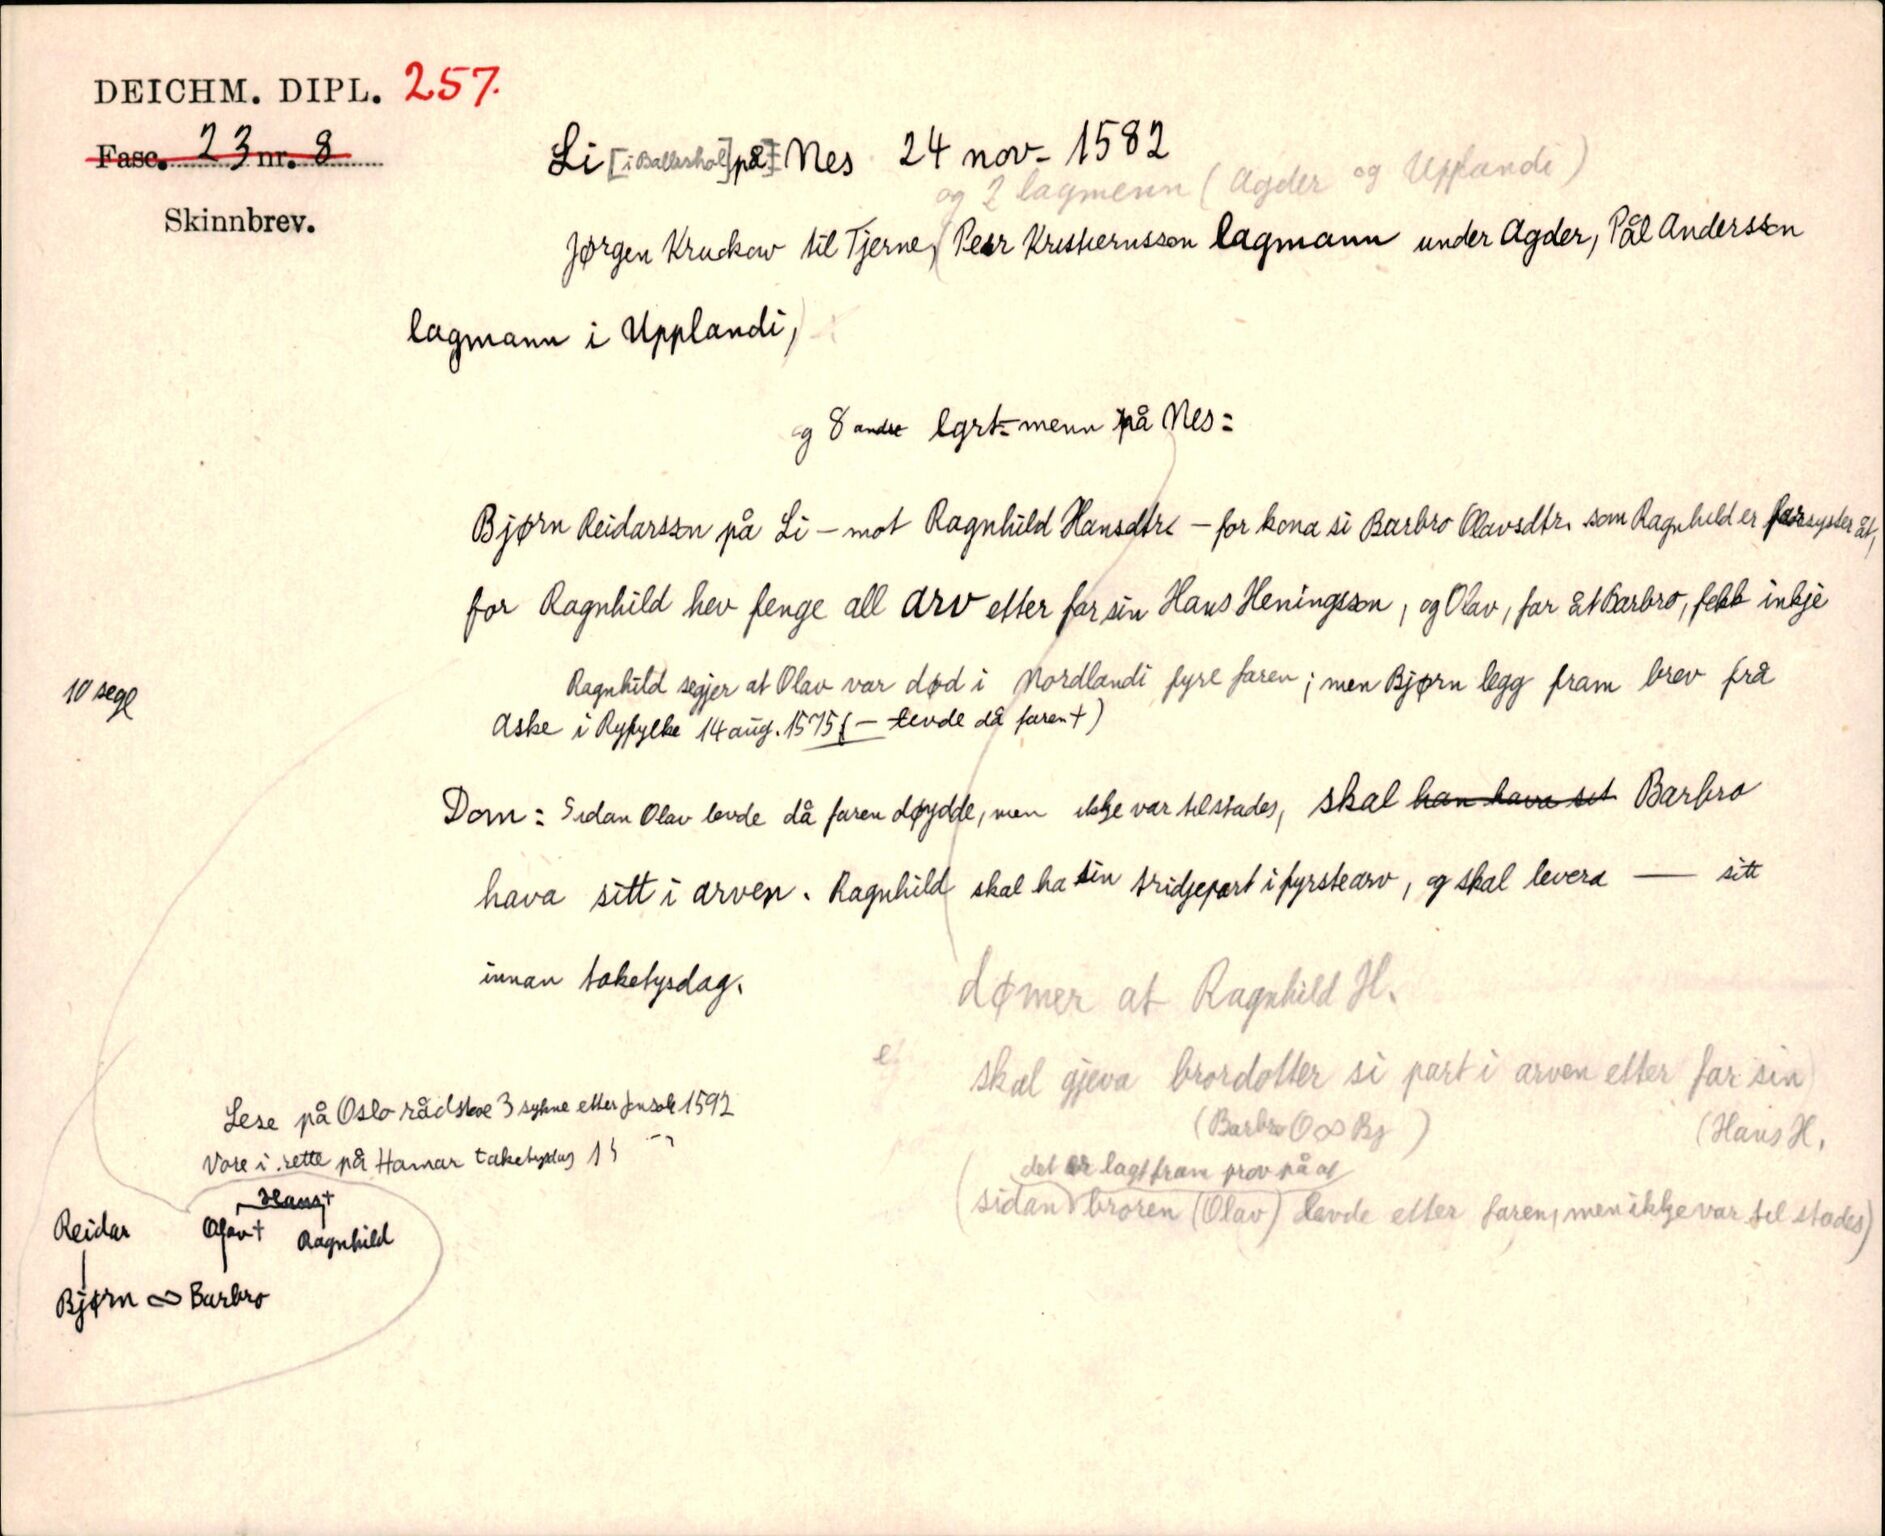 DEICHM. DIPL. 257.
Fasc. 23 nr. 8
Skinnbrev.
Li [i Balkshol] på Nes 24 nov. 1582
og 2 lagmenn (Agder og Upplandi)
Jørgen Kruckow til Tjerne, (Peder Kristiernsson lagmann under Agder, Pål Andersson
lagmann i Upplandi,)
og 8 andre lgrt-menn på Nes:
Bjørn Reidarsson på Li – mot Ragnhild Hansdtr. – for kona si Barbro Olavsdtr. som Ragnhild er farsyster åt,
for Ragnhild hev fenge all arv etter far sin Hans Heningsson, og Olav, far åt Barbro, fekk inkje
Ragnhild segjer at Olav var død i Nordlandi fyre faren; men Bjørn legg fram brev frå
Aske i Ryfylke 14 aug. 1575 (– levde då faren †)
10 segl
Dom: Sidan Olav levde då faren døydde, men ikkje var tilstades, skal han hava sit Barbro
hava sitt i arven. Ragnhild skal ha sin tridjepart i fyrstearv, og skal levera — sitt
innan toketysdag.
dømer at Ragnhild H.
skal gjeva brordotter si part i arven etter far sin
(Barbro O ∞ Bj) (Hans H.
det er lagt fram prov på at
(sidan broren (Olav) levde etter faren, men ikkje var til stades)
Lese på Oslo rådstoe 3 sykne etter Jonsok 1592
Vore i rette på Hamar taketysdag
Hans †
Reidar Olav † Ragnhild
Bjørn ∞ Barbro